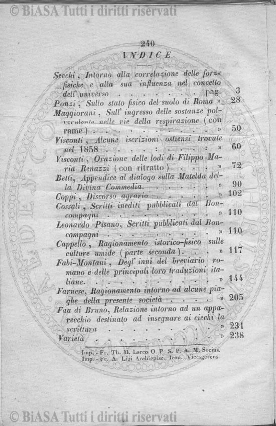 © BIASA Tutti i diritti riservati
240
INDICE
Secchi, Intorno alla correlazione delle forze
fisiche e alla sua influenza nel concetto
dell'universo pag. 3
Ponzi, Sullo stato fisico del suolo di Roma » 28
Maggiorani, Sull' ingresso delle sostanze pol-
verulente nelle vie della respirazione (con
rame) » 50
Visconti, Alcune iscrizioni ostiensi trovate
nel 1858 » 60
Visconti, Orazione delle lodi di Filippo Ma-
ria Renazzi (con ritratto) » 72
Betti, Appendice al dialogo sulla Matelda del-
la Divina Commedia. » 90
Coppi, Discorso agrario » 102
Cossali, Scritti inediti pubblicati dal Bon-
compagni » 110
Leonardo Pisano, Scritti pubblicati dal Bon-
compagni » 110
Cappello, Ragionamento istorico-fisico sulle
culture umide (parte seconda) » 117
Fabi-Montani, Degl' inni del breviario ro-
mano e delle principali loro traduzioni ita-
liane. » 144
Farnese, Ragionamento intorno ad alcune pia-
ghe della presente società » 205
Fau di Bruno, Relazioni intorno ad un appa-
recchio destinato ad insegnare ai ciechi la
scrittura » 231
Varietà » 238
Imp. Fr. Th. M. Larco O. P. S. P. A. M. Socius.
Imp. Fr. A. Ligi Archiepisc. Icon. Vicesgerens.
© BIASA Tutti i diritti riservati